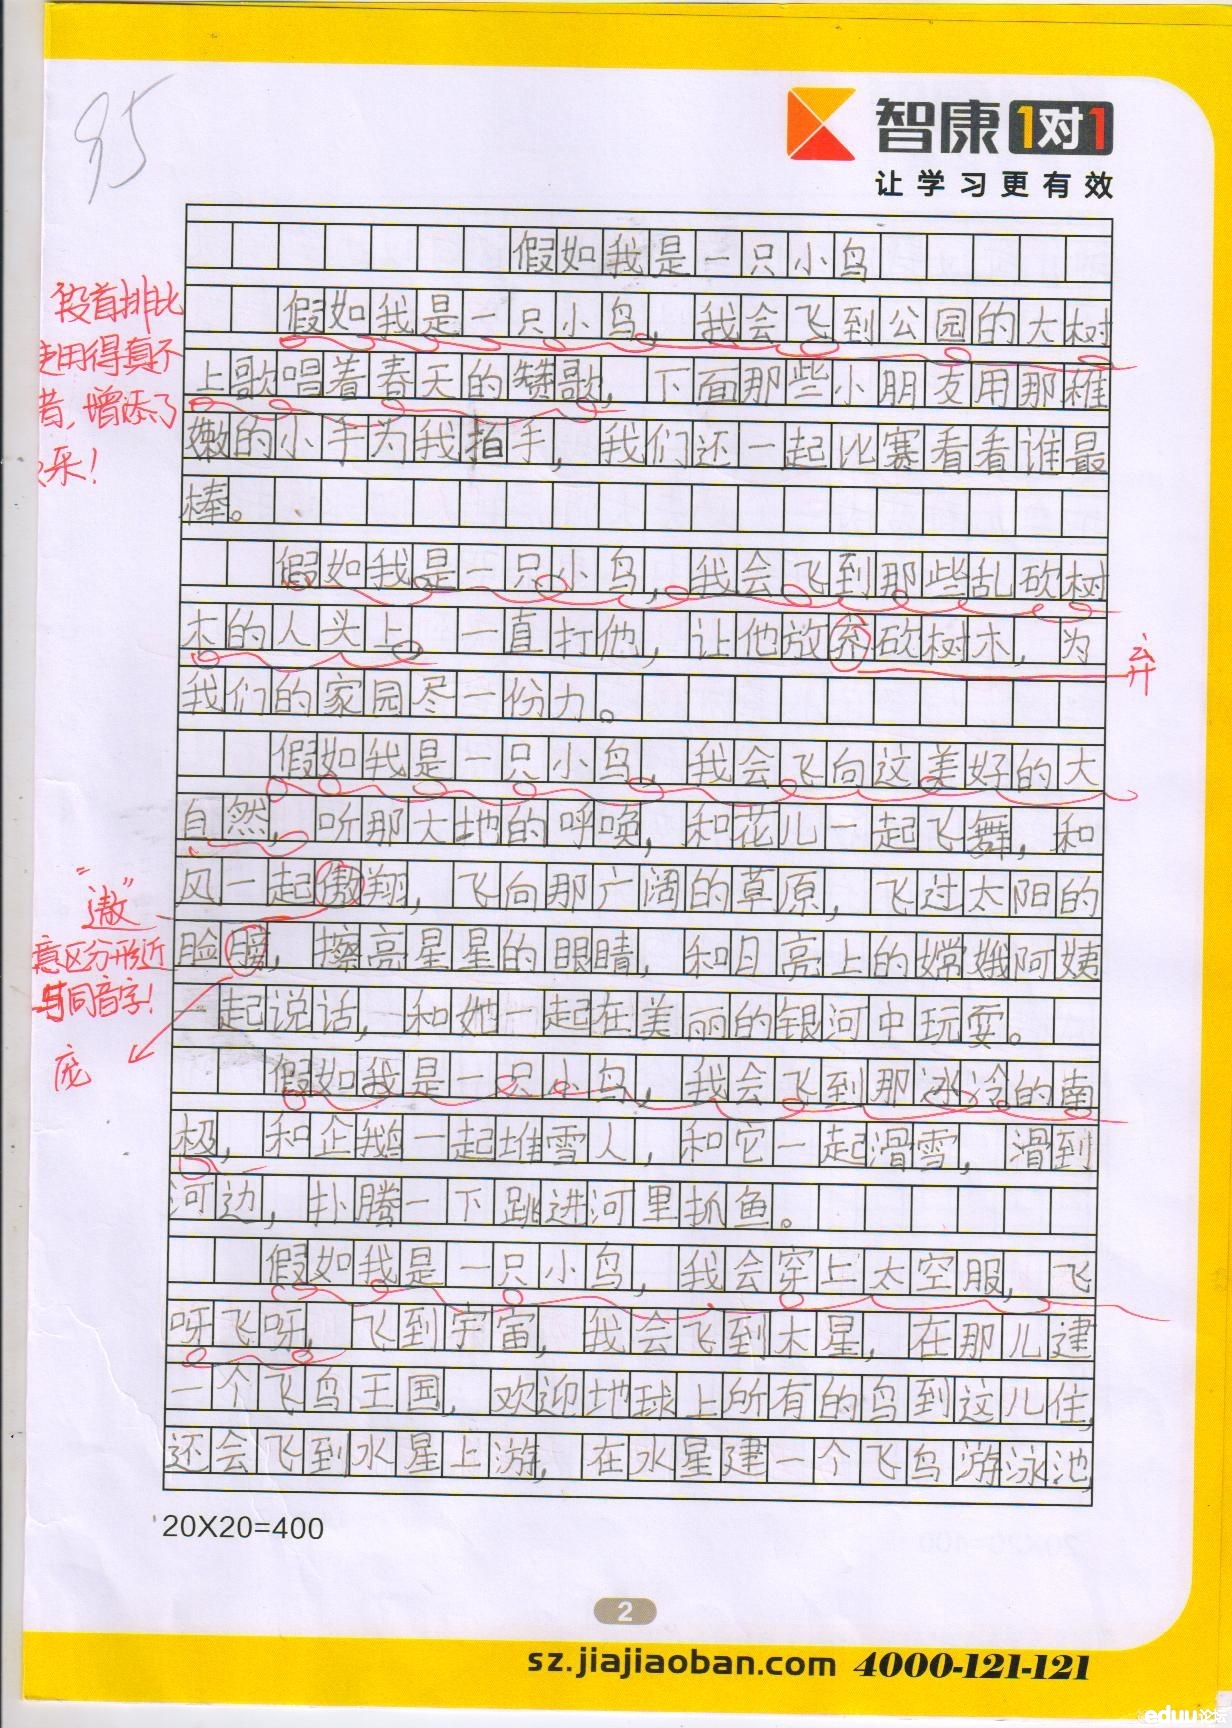 95
智康1对1
让学习更有效
假如我是一只小鸟
段首排比
使用得真不
错，增添了
采！
假如我是一只小鸟，我会飞到公园的大树
上歌唱着春天的赞歌，下面那些小朋友用那稚
嫩的小手为我拍手，我们还一起比赛看看谁最
棒。
假如我是一只小鸟，我会飞到那些乱砍树
木的人头上，一直打他，让他放弃砍树木，为
弃
我们的家园尽一份力。
假如我是一只小鸟，我会飞向这美好的大
自然，听那大地的呼唤，和花儿一起飞舞，和
风一起傲翔，飞向那广阔的草原，飞过太阳的
"遨"
意区分形近
与同音字！
庞
脸，擦亮星星的眼睛，和月亮上的嫦娥阿姨
一起说话，和她一起在美丽的银河中玩耍。
假如我是一只小鸟，我会飞到那冰冷的南
极，和企鹅一起堆雪人，和它一起滑雪，滑到
河边，扑腾一下跳进河里抓鱼。
假如我是一只小鸟，我会穿上太空服，飞
呀飞呀，飞到宇宙，我会飞到木星，在那儿建
一个飞鸟王国，欢迎地球上所有的鸟到这儿住，
还会飞到水星上游，在水星建一个飞鸟游泳池，
20X20=400
2
sz.jiajiaoban.com 4000-121-121
eduu论坛